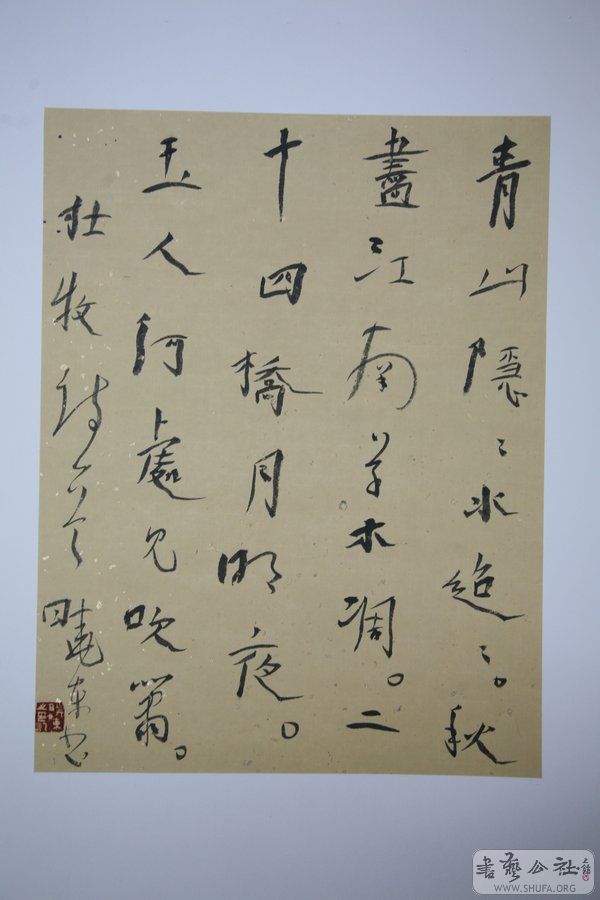 青山隱〻水迢〻。秋
盡江南草木凋。二
十四橋月明夜。
玉人何處見吹簫。
杜牧詩一首 曉東书
書藝公社
WWW.SHUFA.ORG